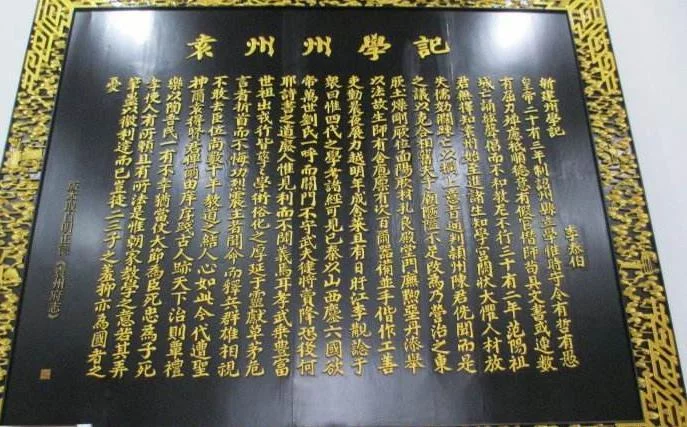 袁州州學記
李泰伯
新建州學記
皇帝二十有三年制詔州縣立學惟時守令有哲有愚
有屈力殫慮祗順德意有假官僭師苟具文書或連數
城亡誦絃聲倡而不和教尼不行三十有二年范陽祖
君無擇知袁州始至進諸生知學宮闕狀大懼人材放
失儒効闊疎亡以稱上意旨通判潁州陳君侁聞而是
之議以克合相舊夫子廟陿隘不足改為乃營治之東
厥土燥剛厥位面陽厥材孔良殿堂門廡黝堊丹漆舉
以法故生師有舍庖廩有次百爾器備並手偕作工善
吏勤晨夜展力越明年成舍菜且有日盱江李覯諗于
衆曰惟四代之學考諸經可見已秦以山西鏖六國欲
帝萬世劉氏一呼而關門不守武夫健將賣降恐後何
耶詩書之道廢人惟見利而不聞義焉耳孝武乘豐富
世祖出戎行皆孳孳學術俗化之厚延于靈獻草茅危
言者折首而不悔功烈震主者聞命而釋兵群雄相視
不敢去臣位尚數十年教道之結人心如此今代遭聖
神爾袁得聖君俾爾由庠序踐古人跡天下治則覃禮
樂以陶吾民一有不幸猶當仗大節為臣死忠為子死
孝使人有所賴且有所法是惟朝家教學之意若其弄
筆墨徼利達而已豈徒二三子之羞抑亦為國者之
憂
《袁州府志》